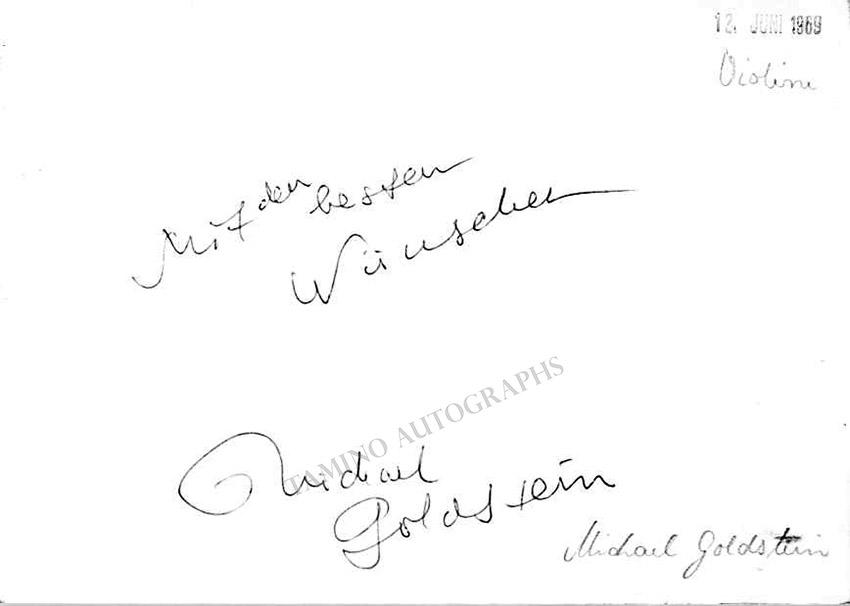 12. JUNI 1969
Violine
Mit den besten
Wünschen
TAMINO AUTOGRAPHS
Michael
Goldstein
Michael Goldstein